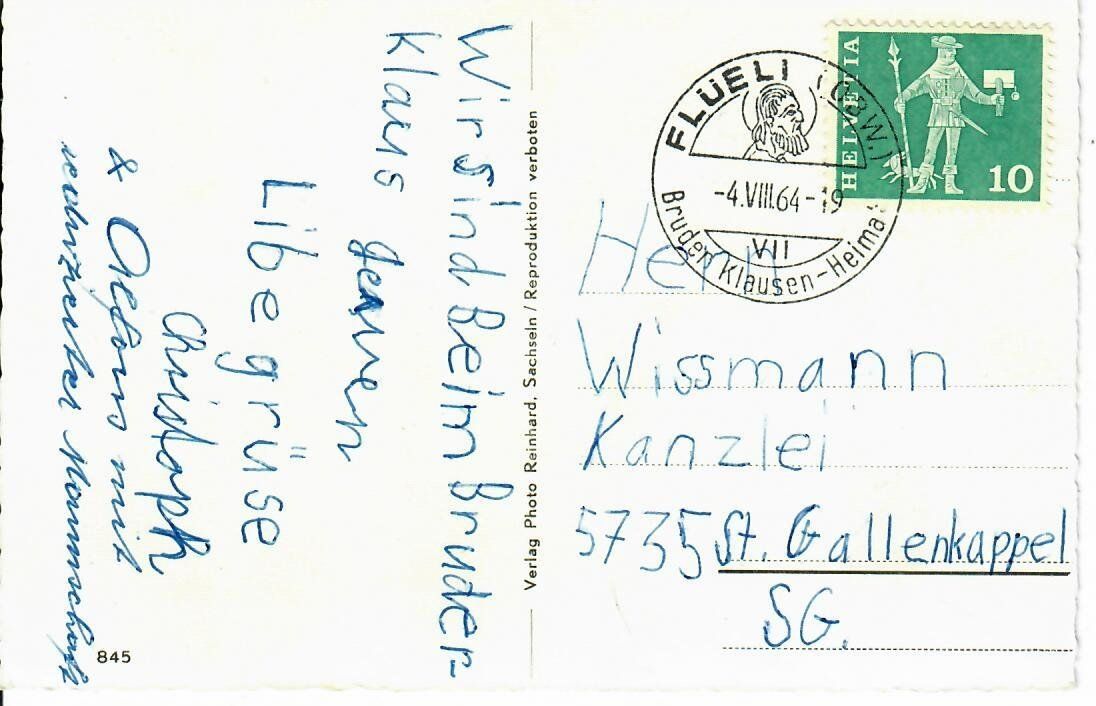 Wir sind Beim Bruder-
Klaus gewen
Libe grüse
Christoph
& Alfons mit
Mannschaft
845
Verlag Photo Reinhard, Sachseln / Reproduktion verboten
FLÜELI (OBW.)
-4.VIII.64-19
VII
Bruder Klausen-Heimat
HELVETIA
10
Herr
Wissmann
Kanzlei
5735 St. Gallenkappel
SG.